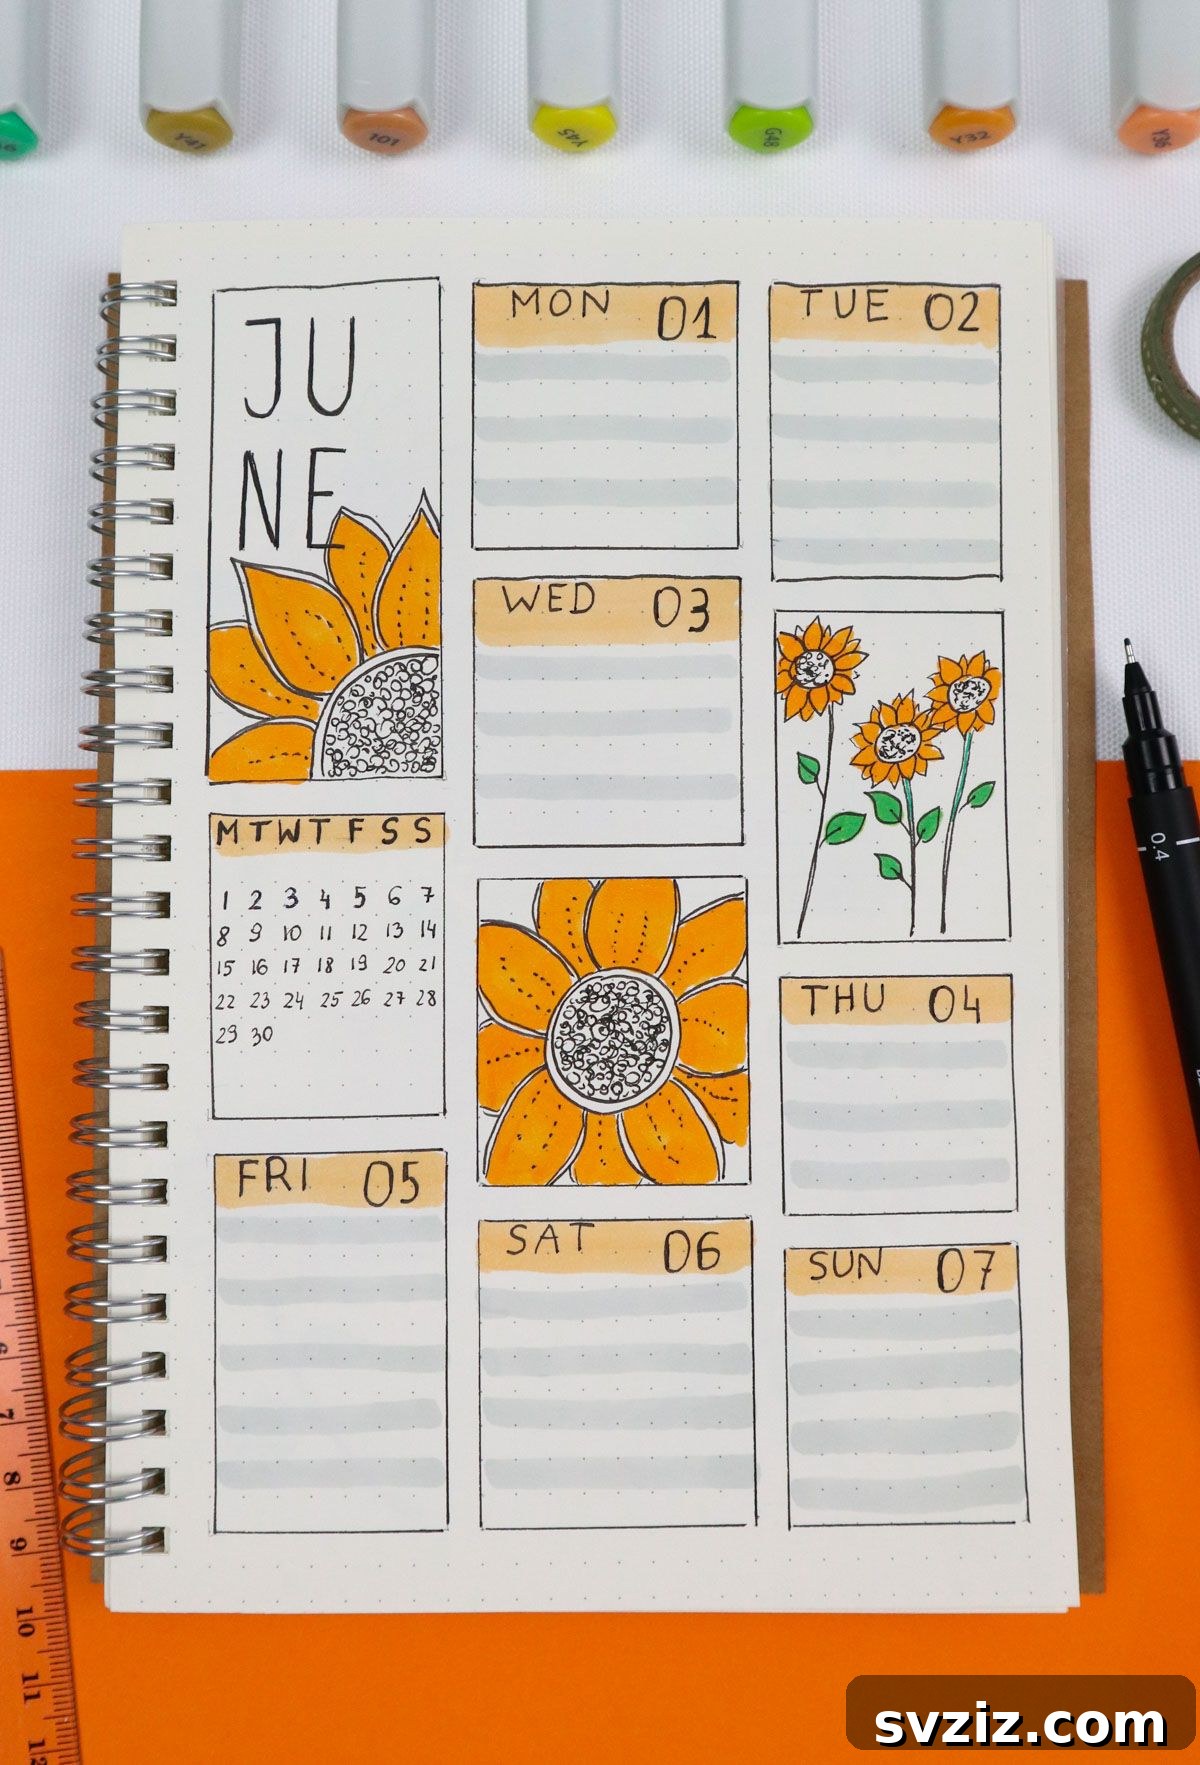 Y41
101
Y45
G48
Y32
Y36
JU
NE
MON 01
TUE 02
WED 03
M T W T F S S
1 2 3 4 5 6 7
8 9 10 11 12 13 14
15 16 17 18 19 20 21
22 23 24 25 26 27 28
29 30
THU 04
FRI 05
SAT 06
SUN 07
0.4
7
8
9
10
11
12
svziz.com